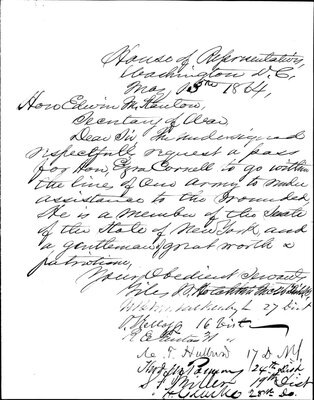 House of Representatives,
Washington D.C.
May 13th 1864,
Hon Edwin M. Stanton,
Secretary of War
Dear Sir, The undersigned
respectfully request a pass
for Hon, Ezra Cornell to go within
the lines of our Army to make
assistance to the wounded
He is a member of the Senate
of the State of New York and
a gentleman of great worth &
patriotism,
Your Obedient Servant
Giles W. Hotchkiss
27 Dist
O. Kellogg 16 Dist
R E Fenton
C. T. Hulburd 17 D. N.Y.
Theodore M. Pomeroy 24th Dist
S. F. Miller 19th Dist
F Clarke 20th Do.